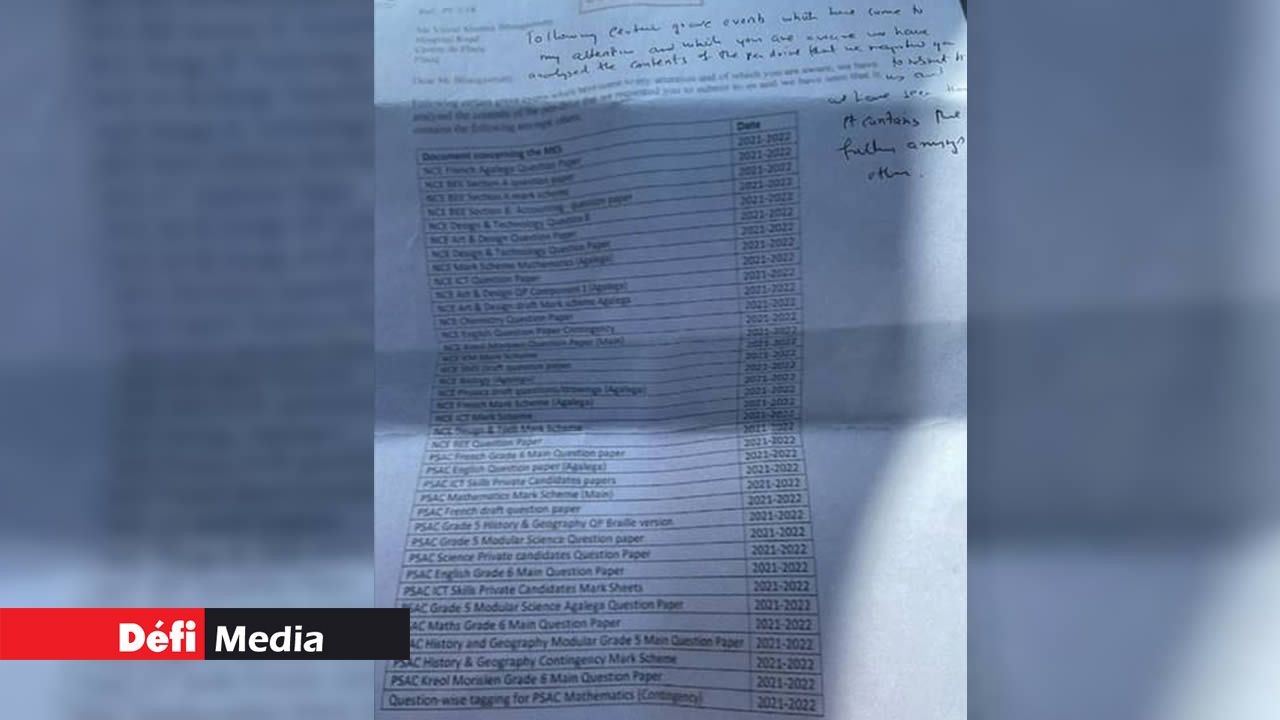 Following certain grave events which have come to
my attention and which you are aware we have
analysed the contents of the pen drive that we requested you
to submit to
us and
we have seen that
it contains the
following amongst
other.
Dear Mr
Following certain grave events which have come to my attention and of which you are aware, we have
analysed the contents of the pen drive that we requested you to submit to us and we have seen that it
contains the following amongst others:
Document concerning the MES Date
NCE French Agalega Question Paper 2021-2022
NCE BEE Section A question paper 2021-2022
NCE BEE Section A mark scheme 2021-2022
NCE BEE Section B: Accounting, question paper 2021-2022
NCE Design & Technology Question 2021-2022
NCE Art & Design Question Paper 2021-2022
NCE Design & Technology Question Paper 2021-2022
NCE Mark Scheme Mathematics (Agalega) 2021-2022
NCE ICT Question Paper 2021-2022
NCE Art & Design QP Component 1 (Agalega) 2021-2022
NCE Art & Design draft Mark scheme Agalega 2021-2022
NCE Chemistry Question Paper 2021-2022
NCE English Question Paper Contingency 2021-2022
NCE Kreol Morisien Question Paper (Main) 2021-2022
NCE Mark Scheme 2021-2022
NCE draft question paper 2021-2022
NCE Biology (Agalega) 2021-2022
NCE Physics draft questions/drawings (Agalega) 2021-2022
NCE French Mark Scheme (Agalega) 2021-2022
NCE ICT Mark Scheme 2021-2022
NCE Design & Tech Mark Scheme 2021-2022
NCE BEE Question Paper 2021-2022
PSAC French Grade 6 Main Question paper 2021-2022
PSAC English Question paper (Agalega) 2021-2022
PSAC ICT Skills Private Candidates papers 2021-2022
PSAC Mathematics Mark Scheme (Main) 2021-2022
PSAC French draft question paper 2021-2022
PSAC Grade 5 History & Geography QP Braille version 2021-2022
PSAC Grade 5 Modular Science Question paper 2021-2022
PSAC Science Private candidates Question Paper 2021-2022
PSAC English Grade 6 Main Question Paper 2021-2022
PSAC ICT Skills Private Candidates Mark Sheets 2021-2022
PSAC Grade 5 Modular Science Agalega Question Paper 2021-2022
PSAC Maths Grade 6 Main Question Paper 2021-2022
PSAC History and Geography Modular Grade 5 Main Question Paper 2021-2022
PSAC History & Geography Contingency Mark Scheme 2021-2022
PSAC Kreol Morisien Grade 6 Main Question Paper 2021-2022
Question-wise tagging for PSAC Mathematics (Contingency) 2021-2022
Défi Media